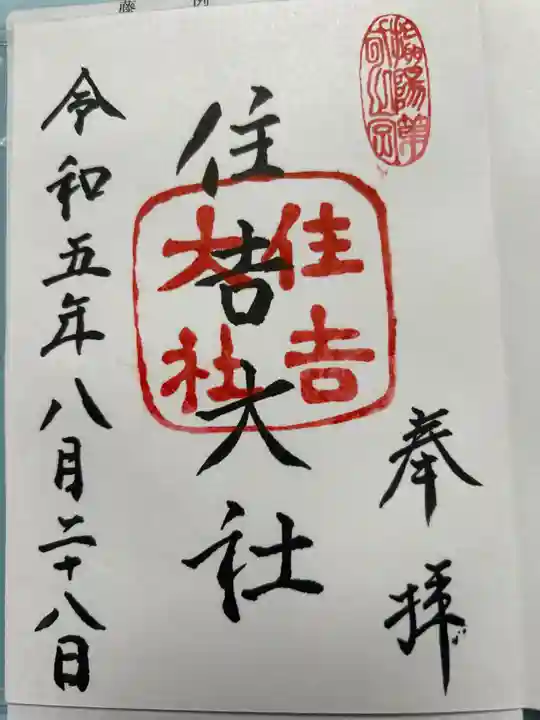 奉拝
住吉大社
令和五年八月二十八日
住吉
大社